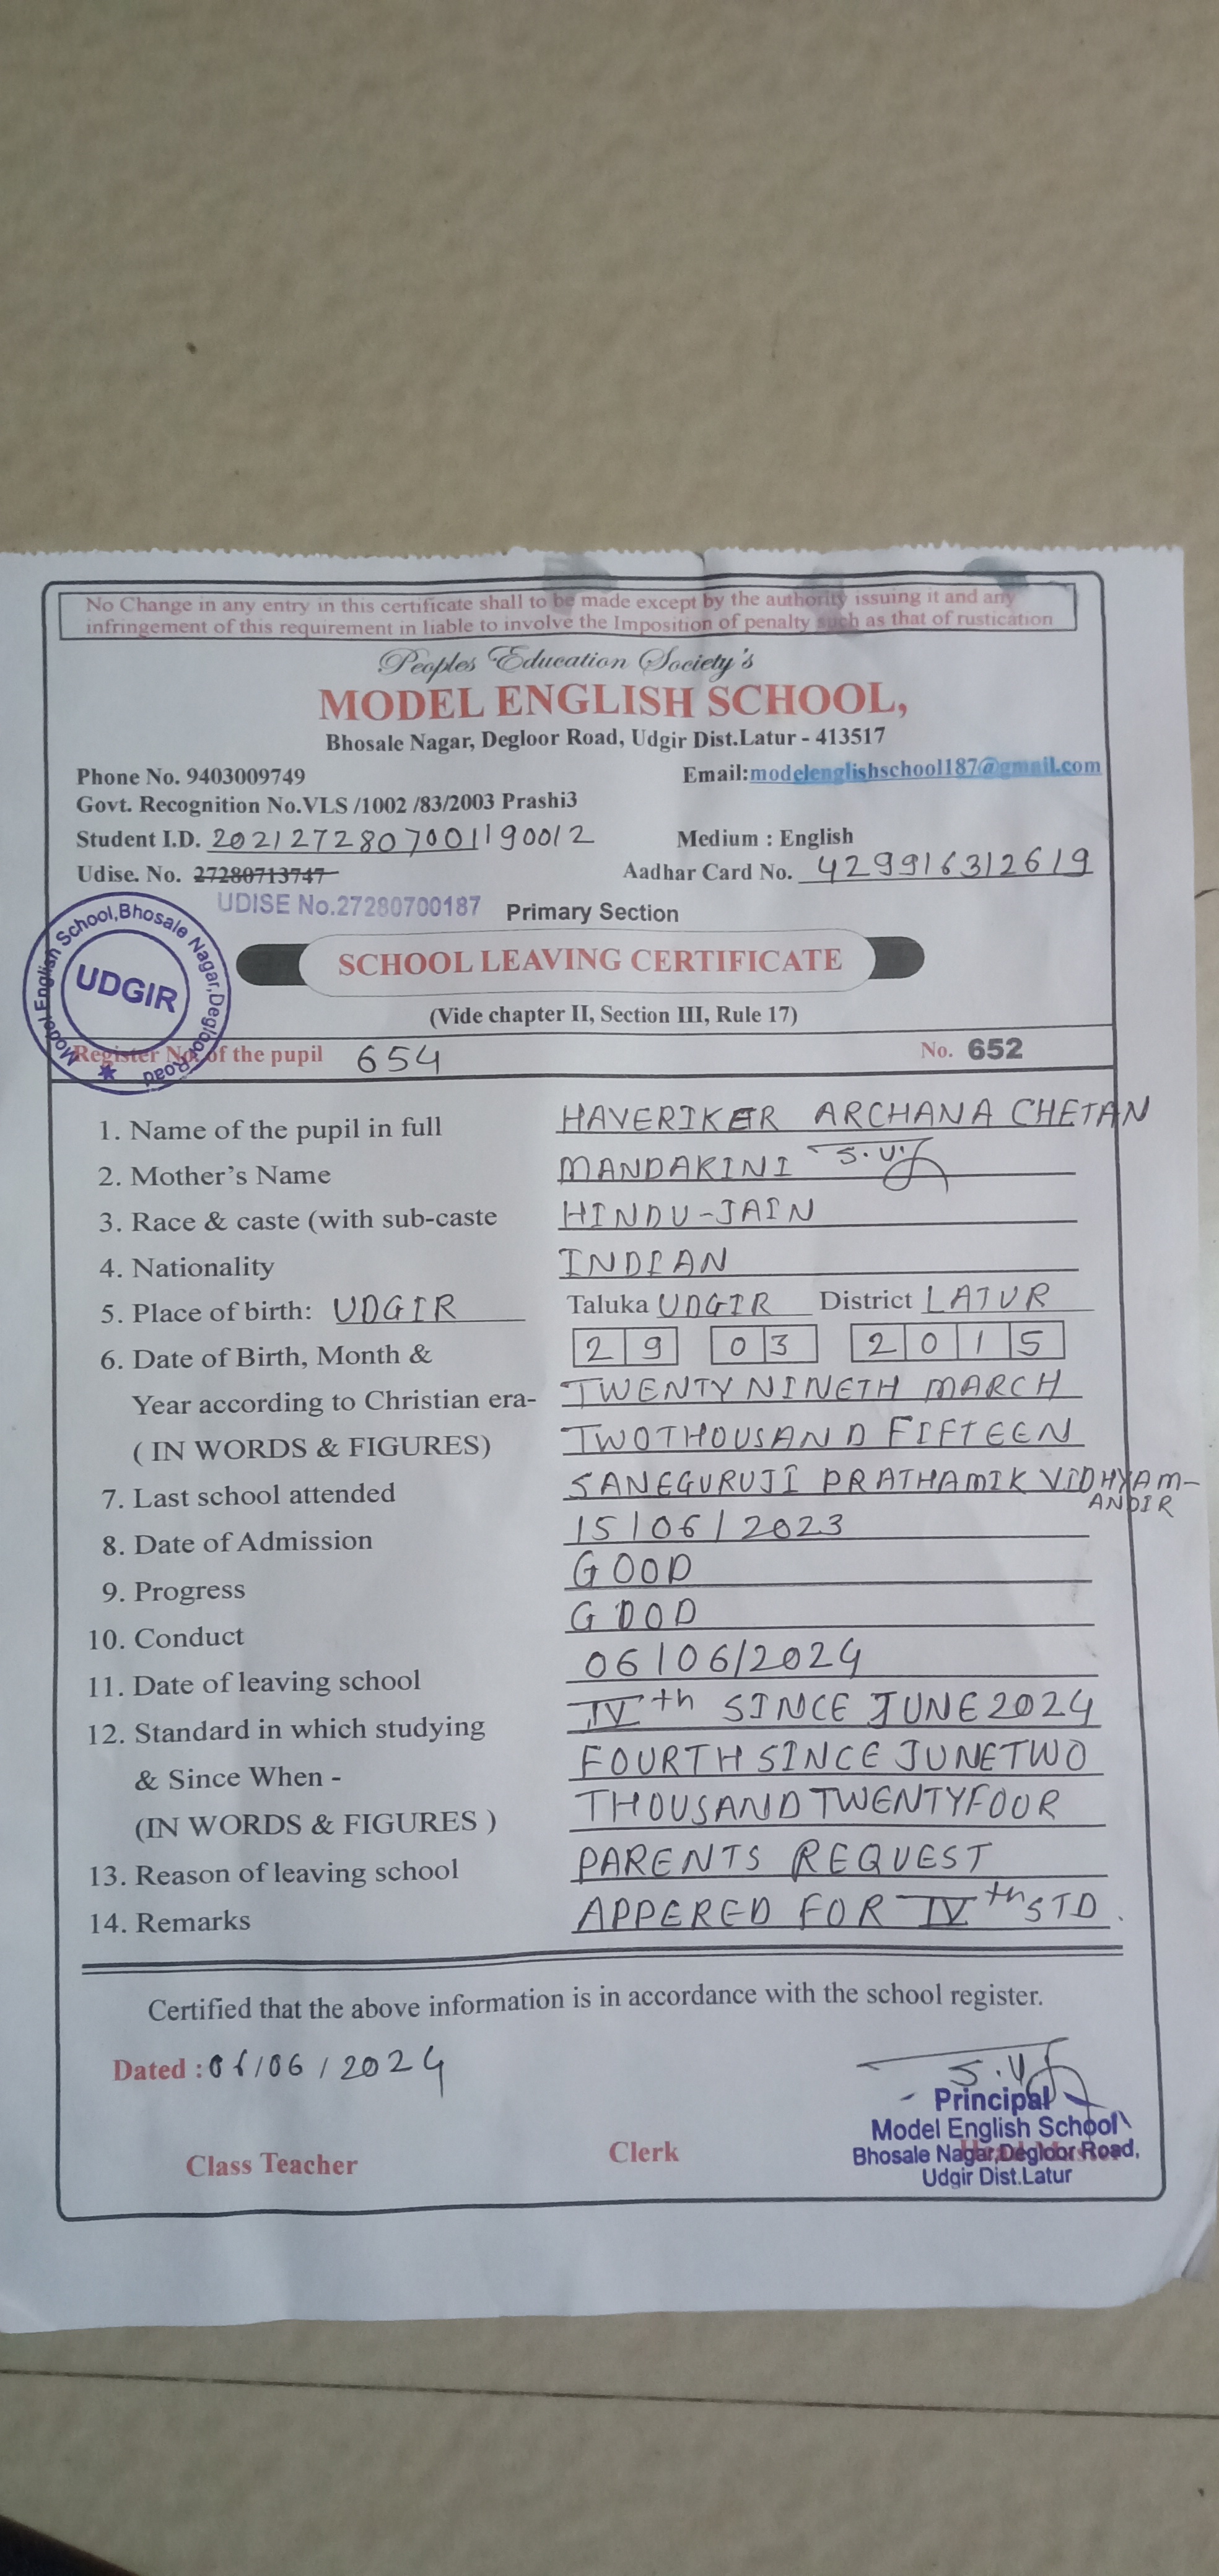 No Change in any entry in this certificate shall to be made except by the authority issuing it and any
infringement of this requirement in liable to involve the Imposition of penalty such as that of rustication
Peoples Education Society's
MODEL ENGLISH SCHOOL,
Bhosale Nagar, Degloor Road, Udgir Dist.Latur - 413517
Phone No. 9403009749 Email:modelenglishschool187@gmail.com
Govt. Recognition No.VLS /1002 /83/2003 Prashi3
Student I.D. 2021272807001190012 Medium : English
Udise. No. 27280713747 Aadhar Card No. 429916312619
UDISE No.27280700187 Primary Section
Model English School,Bhosale Nagar,Degloor Road
UDGIR
SCHOOL LEAVING CERTIFICATE
(Vide chapter II, Section III, Rule 17)
Register No. of the pupil 654 No. 652
1. Name of the pupil in full HAVERIKER ARCHANA CHETAN
2. Mother's Name MANDAKINI
3. Race & caste (with sub-caste HINDU-JAIN
4. Nationality INDIAN
5. Place of birth: UDGIR Taluka UDGIR District LATUR
6. Date of Birth, Month & 29 03 2015
Year according to Christian era- TWENTY NINETH MARCH
( IN WORDS & FIGURES) TWOTHOUSAND FIFTEEN
7. Last school attended SANEGURUJI PRATHAMIK VIDHYAM-
ANDIR
8. Date of Admission 15/06/2023
9. Progress GOOD
10. Conduct GOOD
11. Date of leaving school 06/06/2024
12. Standard in which studying IVth SINCE JUNE 2024
& Since When - FOURTH SINCE JUNE TWO
(IN WORDS & FIGURES ) THOUSAND TWENTYFOOR
13. Reason of leaving school PARENTS REQUEST
14. Remarks APPERED FOR IVth STD.
Certified that the above information is in accordance with the school register.
Dated : 06/06/2024
Principal
Model English School
Bhosale Nagar,Degloor Road,
Udgir Dist.Latur
Class Teacher Clerk